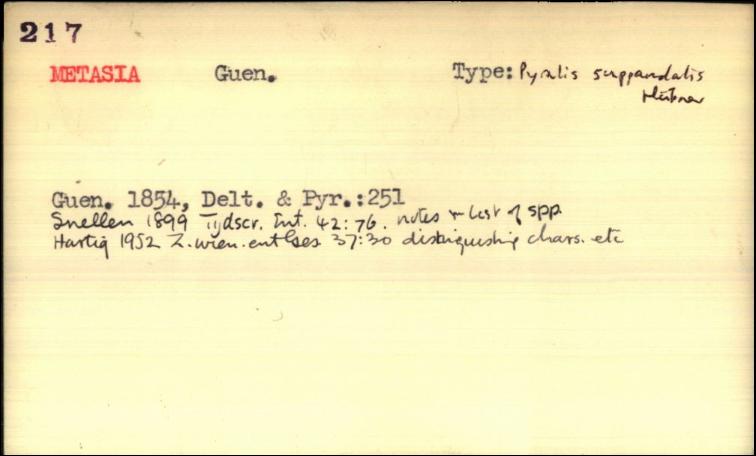 217
METASIA Guen. Type: Pyralis suppandalis
Hübner
Guen. 1854, Delt. & Pyr.:251
Snellen 1899 Tijdscr. Ent. 42:76. notes + list of spp
Hartig 1952 Z. wien. ent Ges 37:30 distinguishing chars. etc